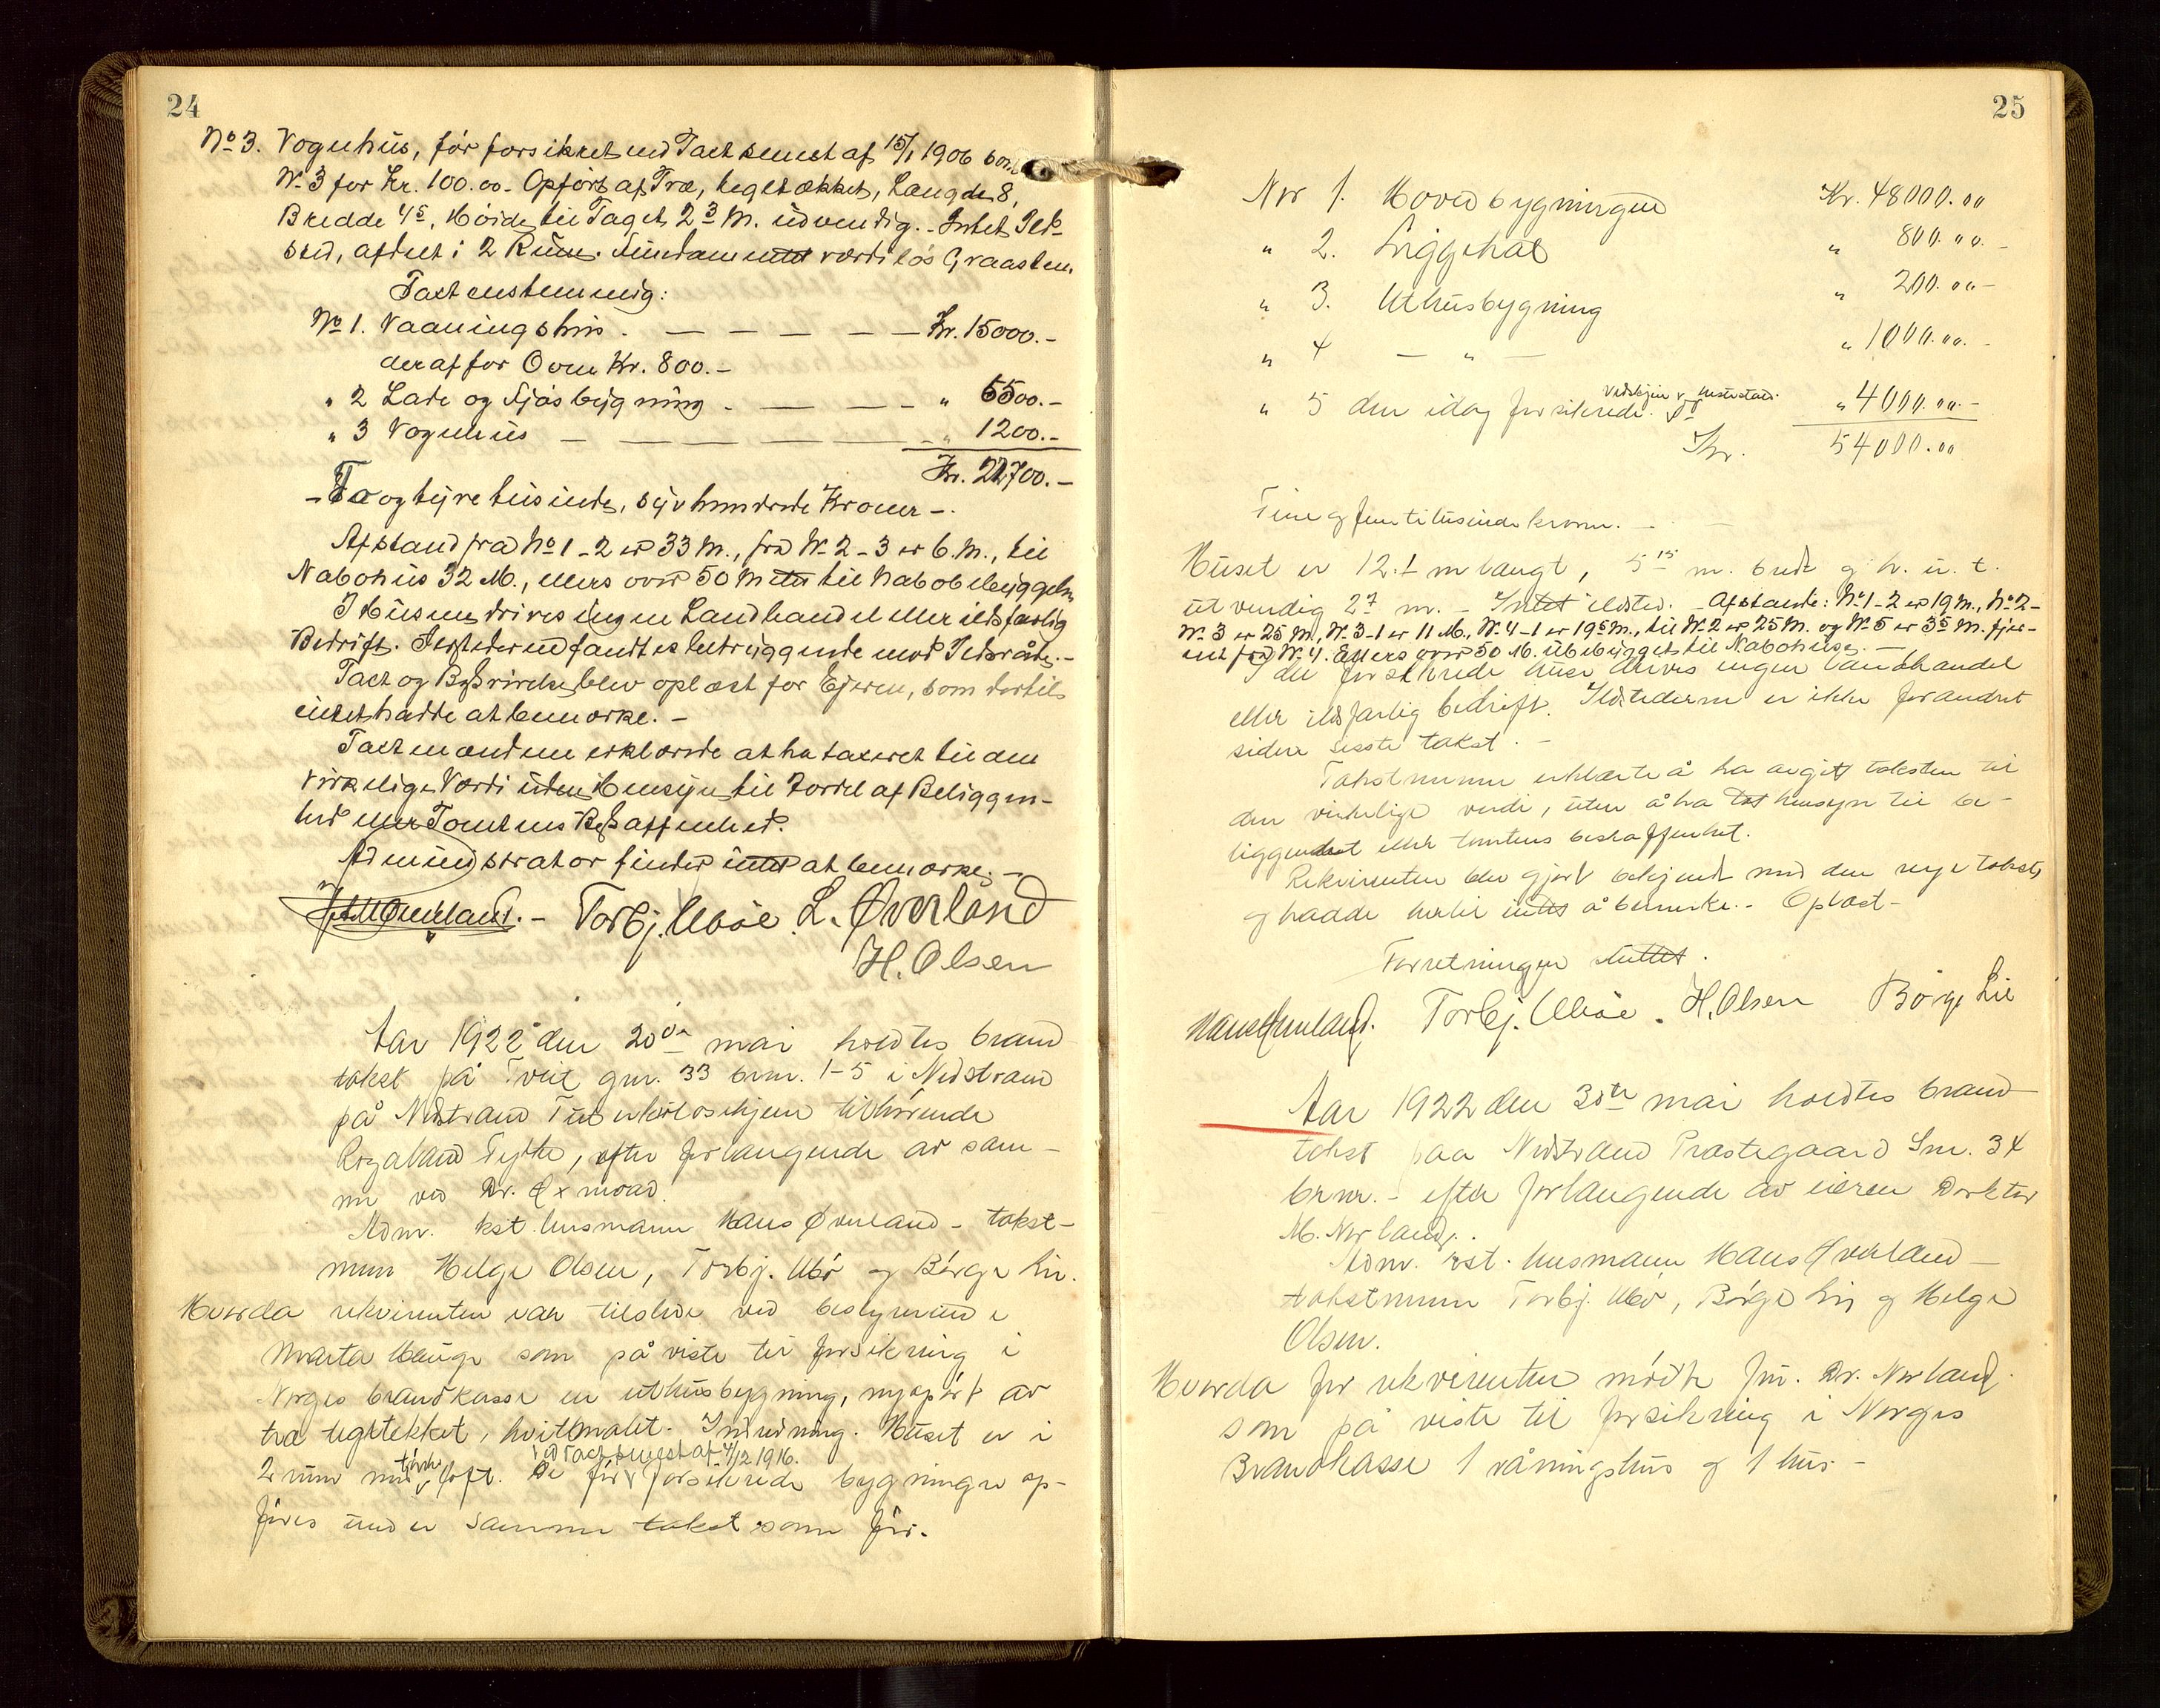 24
No 3. Vognhus, før forsikret ved Taxt senest af 15/1 1906 som
No 3 for Kr. 100.00. Opført af Træ, teglstækket, Længde 8,
Bredde 4⁵, Høide til Taget 2³ M. udvendig. - Intet Ild-
sted, afdelt i 2 Rum. Fundamentet værdiløs Graasten.
Taxt enstemmig:
No 1. Vaaningshus. — — — — — Kr. 15000.-
deraf for Ovne Kr. 800.-
" 2 Lade og Fjøsbygning - — — - " 5500.-
" 3 Vognhus — — — — — " 1200.-
Kr. 21700.-
- En og tyve tusinde, syv hundrede Kroner -.
Afstand fra No 1-2 er 33 M., fra No 2-3 er 6 M., til
Nabohus 32 M., ellers over 50 Meter til nabobebyggelse
I Husene drives ingen Landhandel eller ildsfarlig
Bedrift. Ildstederne fandtes betryggende mod Ildsvåde. -
Taxt og Beskrivelse blev oplæst for Ejeren, som dertil
intet hadde at bemærke. -
Taxtmændene erklærede at ha taxeret til den
virkelige Værdi uden Hensyn til Fordel af Beliggen-
hed eller Tomtens Beskaffenhed.
Administrator finder intet at bemærke. -
Torbj. Ubøe. L. Øverland
H. Olsen
Aar 1922 den 20de mai holdtes brand
takst på Tveit gnr. 33 brnr. 1-5 i Nedstrand
på Nedstrand Tuberkuloschjem tilhørende
Rogaland Fylke, efter forlangende av sam-
me ved Dr. Exmoad.
Adm. kst. lensmann Hans Øverland - takst-
menn Helge Olsen, Torbj. Ubø og Børge Lie.
Hvorda rekvirenten var tilstede ved bestyrerinde
Marta Hauge som påviste til forsikring i
Norges brandkasse en uthusbygning, nyopført av
træ teglstekket, hvitmalet. Indredning. Huset er i
2 rum med tørke loft. De før ved Taxt senest af 4/12 1916. forsikrede bygninger op-
føres under samme takst som før.
25
Nr 1. Hovedbygningen Kr. 48000.00
" 2. Liggehal " 800.00.-
" 3. Uthusbygning " 200.00-
" 4 — " — " 1000.00.-
" 5 den idag forsikrede. Vedskjul og hestestald. " 4000.00.-
Kr. 54000.00
Fire og femti tusinde kroner. -
Huset er 12.1 m langt, 5¹⁵ m. bredt og h. u. t.
utvendig 2⁷ m. - Intet ildsted. - Afstande: No 1-2 er 19 M., No 2-
No 3 er 25 M., No 3-1 er 11 M., No 4-1 er 19⁵ M., til No 2 er 25 M. og No 5 er 3⁵ M. fjer-
net fra No 4. Ellers over 50 M. ubebygget til Nabohuse. -
I de forsikrede huse drives ingen landhandel
eller ildsfarlig bedrift. Ildstederne er ikke forandret
siden sisste takst. -
Takstmennene erklærte å ha avgit taksten til
den virkelige verdi, uten å ha tat hensyn til be-
liggenhet eller tomtens beskaffenhet.
Rekvirenten blev gjort bekjendt med den nye takst,
og hadde hertil intet å bemerke. - Oplæst -
Forretningen sluttet.
Hans Øverland. Torbj. Ubøe. H. Olsen Børge Lie
Aar 1922 den 30te mai holdtes brand
takst paa Nedstrand Prestegaard Gnr. 34
brnr. - efter forlangende av eieren Doktor
M. Norland.
Adm. kst. lensmann Hans Øverland -
takstmenn Torbj. Ubø, Børge Lie og Helge
Olsen.
Hvorda for rekvirenten mødte fru. Dr. Norland
som påviste til forsikring i Norges
Brandkasse 1 våningshus og 1 hus -